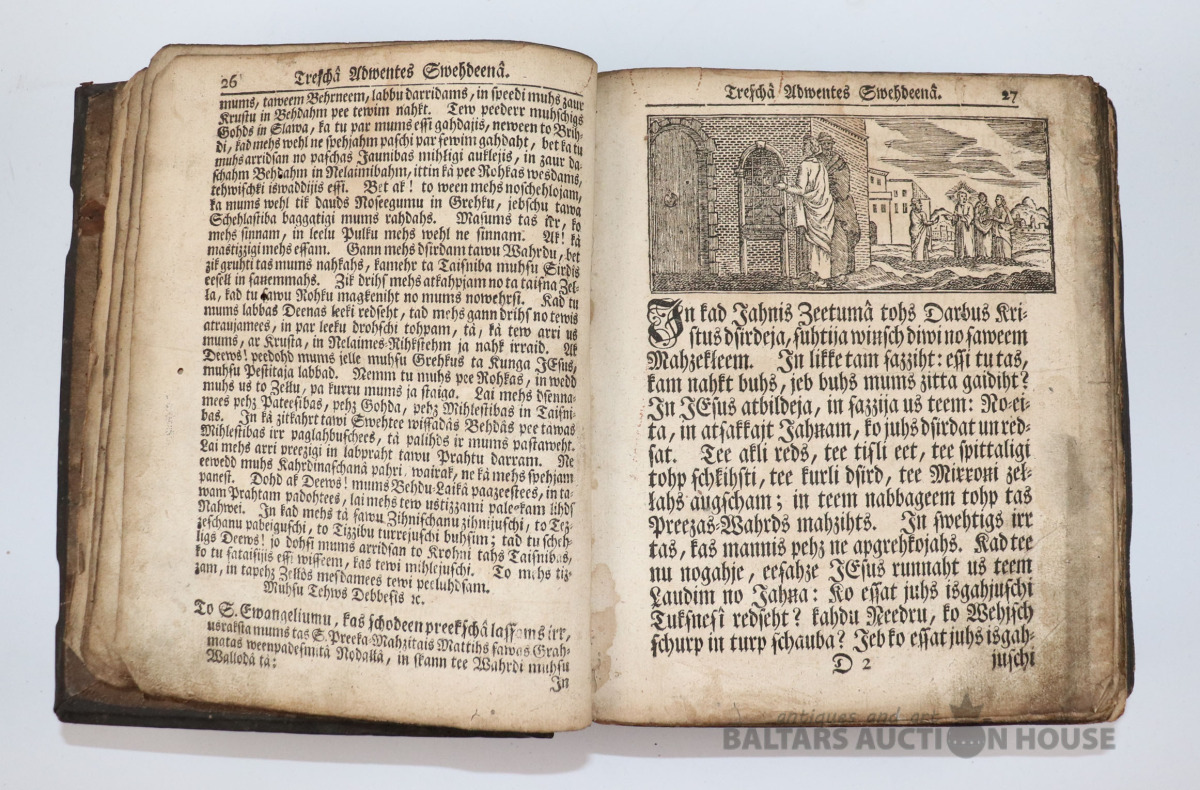 26 Treſchâ Adwentes Swehdeenâ.
mums, taweem Behrneem, labbu darridams, in ſpeedi muhs zaur
Kruſtu in Behdahm pee tewim nahkt. Tew peederr muhſchigs
Gohds in Slawa, ka tu par mums eſſi gahdajis, neween to Brih-
di, kad mehs wehl ne ſpehjahm paſchi par ſewim gahdaht, bet ka tu
muhs arridſan no paſchas Jaunibas mihligi auklejis, in zaur da-
ſchahm Behdahm in Nelaimibahm, ittin kâ pee Rohkas wesdams,
tehwiſchki iswaddijis eſſi. Bet ak! to ween mehs noſchehlojam,
ka mums wehl tik dauds Noſeegumu in Grehku, jebſchu tawa
Schehlaſtiba baggatigi mums rahdahs. Maſums tas irr, ko
mehs ſinnam, in leelu Pulku mehs wehl ne ſinnam. Ak! kâ
maſtizzigi mehs eſſam. Gann mehs dſirdam tawu Wahrdu, bet
zik gruhti tas mums nahkahs, kamehr ta Taiſniba muhſu Sirdis
eeſell in ſanemmahs. Zik drihſ mehs atkahpjam no ta taiſna Zel-
la, kad tu ſawu Rohku magkeniht no mums nowehrſi. Kad tu
mums labbas Deenas leeki redſeht, tad mehs gann drihſ no tewis
atraujamees, in par leeku drohſchi tohpam, tâ, kâ tew arri us
mums, ar Kruſta, in Nelaimes-Rihkſtehm ja nahk irraid. Ak
Deews! peedohd mums jelle muhſu Grehkus ta Kunga JEſus,
muhſu Peſtitaja labbad. Nemm tu muhs pee Rohkas, in wedd
muhs us to Zellu, pa kurru mums ja ſtaiga. Lai mehs dſenna-
mees pehz Pateeſibas, pehz Gohda, pehz Mihleſtibas in Taiſni-
bas. In kâ zitkahrt tawi Swehtee wiſſadâs Behdâs pee tawas
Mihleſtibas irr paglahbuſchees, tâ palihds ir mums paſtaweht.
Lai mehs arri preezigi in labpraht tawu Prahtu darram. Ne
eewedd muhs Kahrdinaſchanâ pahri, wairak, ne kâ mehs ſpehjam
paneſt. Dohd ak Deews! mums Behdu-Laikâ paazeeſtees, in ta-
wam Prahtam padohtees, lai mehs tew ustizzami paleekam lihds
Nahwei. In kad mehs tâ ſawu Zihniſchanu zihnijuſchi, to Tez-
zeſchanu pabeiguſchi, to Tizzibu turrejuſchi buhſim; tad tu ſcheh-
ligs Deews! jo dohſi mums arridſan to Krohni tahs Taiſnibas,
ko tu ſataiſijis eſſi wiſſeem, kas tewi mihlejuſchi. To mehs tiz-
zam, in tapehz Zellôs mesdamees tewi peeluhdſam.
Muhſu Tehws Debbeſis ꝛc.
To S. Ewangeliumu, kas ſchodeen preekſchâ laſſams irr,
usrakſta mums tas S. Preeka-Mahzitais Mattihs ſawas Grah-
matas weenpadeſmitâ Nodallâ, in ſkann tee Wahrdi muhſu
Wallodâ tâ:
In
Treſchâ Adwentes Swehdeenâ. 27
In kad Jahnis Zeetumâ tohs Darbus Kri-
ſtus dſirdeja, ſuhtija winſch diwi no ſaweem
Mahzekleem. In likke tam ſazziht: eſſi tu tas,
kam nahkt buhs, jeb buhs mums zitta gaidiht?
In JEſus atbildeja, in ſazzija us teem: No-ei-
ta, in atſakkajt Jahnam, ko juhs dſirdat un red-
ſat. Tee akli reds, tee tiſli eet, tee ſpittaligi
tohp ſchkihſti, tee kurli dſird, tee Mirroni zel-
lahs augſcham; in teem nabbageem tohp tas
Preezas-Wahrds mahzihts. In ſwehtigs irr
tas, kas mannis pehz ne apgrehkojahs. Kad tee
nu nogahje, eeſahze JEſus runnaht us teem
Laudim no Jahna: Ko eſſat juhs isgahjuſchi
Tukſneſî redſeht? kahdu Needru, ko Wehjſch
ſchurp in turp ſchauba? Jeb ko eſſat juhs isgah-
D 2 juſchi
antiques and art
BALTARS AUCTION HOUSE